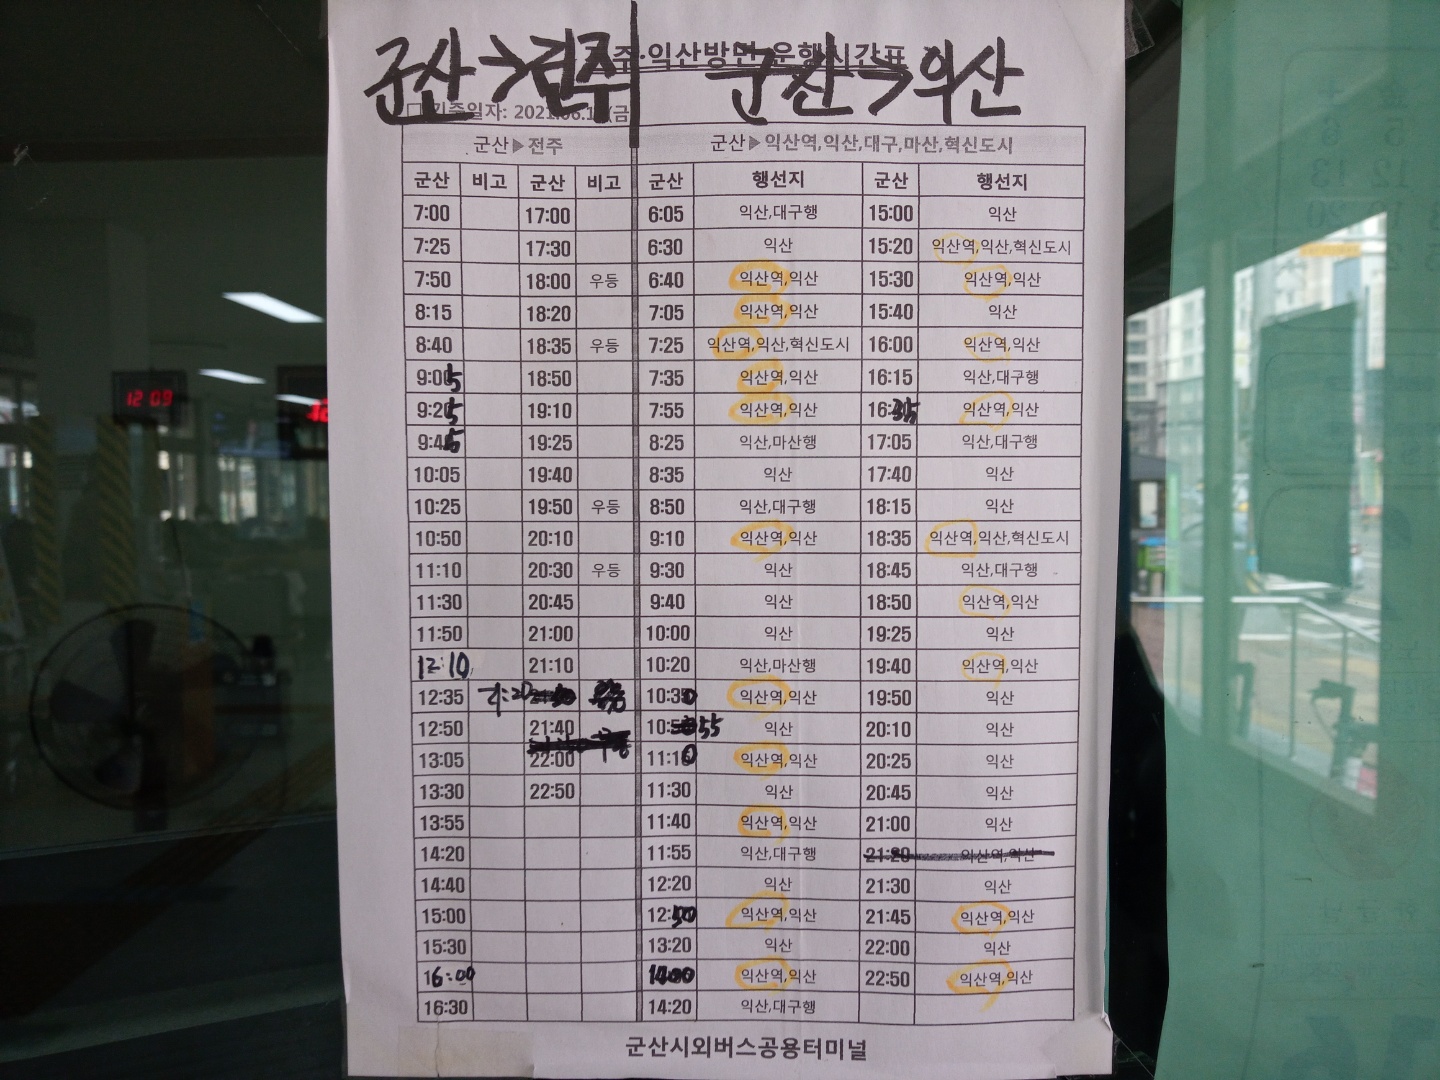 군산→전주 군산→익산
익산방면 운행시간표
군산▶전주 군산▶익산역,익산,대구,마산,혁신도시
군산 비고 군산 비고 군산 행선지 군산 행선지
7:00 17:00 6:05 익산,대구행 15:00 익산
7:25 17:30 6:30 익산 15:20 익산역,익산,혁신도시
7:50 18:00 우등 6:40 익산역,익산 15:30 익산역,익산
8:15 18:20 7:05 익산역,익산 15:40 익산
8:40 18:35 우등 7:25 익산역,익산,혁신도시 16:00 익산역,익산
9:05 18:50 7:35 익산역,익산 16:15 익산,대구행
9:25 19:10 7:55 익산역,익산 16:35 익산역,익산
9:45 19:25 8:25 익산,마산행 17:05 익산,대구행
10:05 19:40 8:35 익산 17:40 익산
10:25 19:50 우등 8:50 익산,대구행 18:15 익산
10:50 20:10 9:10 익산역,익산 18:35 익산역,익산,혁신도시
11:10 20:30 우등 9:30 익산 18:45 익산,대구행
11:30 20:45 9:40 익산 18:50 익산역,익산
11:50 21:00 10:00 익산 19:25 익산
12:10 21:10 10:20 익산,마산행 19:40 익산역,익산
12:35 10:30 익산역,익산 19:50 익산
12:50 21:40 10:55 익산 20:10 익산
13:05 22:00 11:10 익산역,익산 20:25 익산
13:30 22:50 11:30 익산 20:45 익산
13:55 11:40 익산역,익산 21:00 익산
14:20 11:55 익산,대구행 21:20 익산역,익산
14:40 12:20 익산 21:30 익산
15:00 12:50 익산역,익산 21:45 익산역,익산
15:30 13:20 익산 22:00 익산
16:00 14:00 익산역,익산 22:50 익산역,익산
16:30 14:20 익산,대구행
군산시외버스공용터미널
12 09